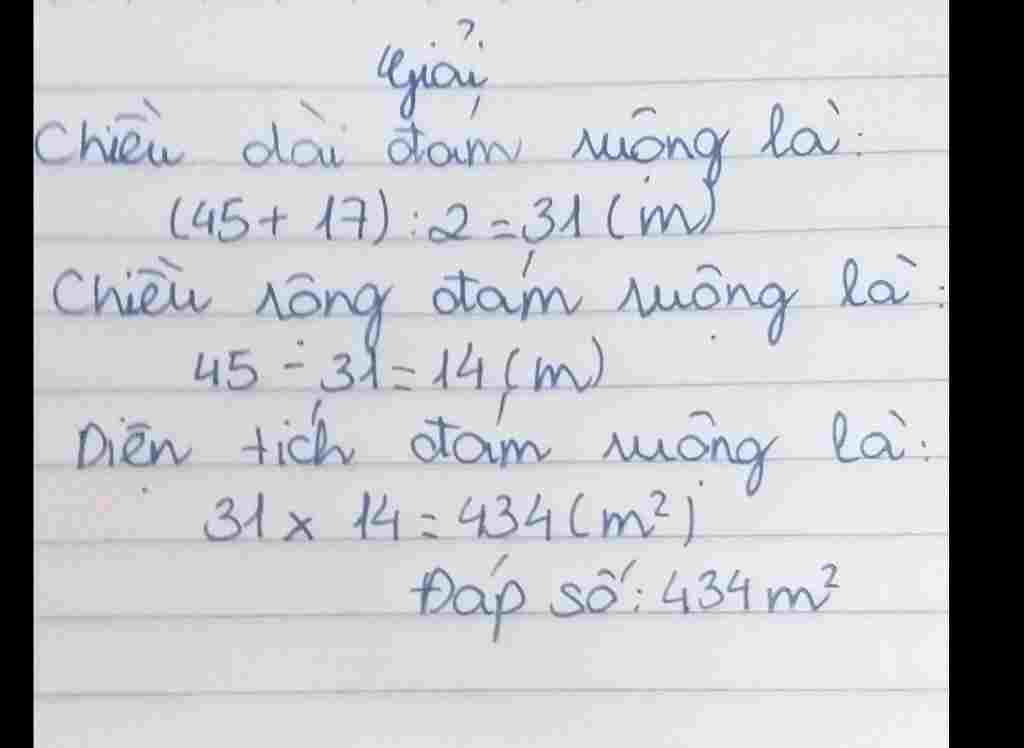 Giải
Chiều dài đám ruộng là:
(45 + 17) : 2 = 31 (m)
Chiều rộng đám ruộng là:
45 - 31 = 14 (m)
Diện tích đám ruộng là:
31 x 14 = 434 (m²)
Đáp số: 434 m²